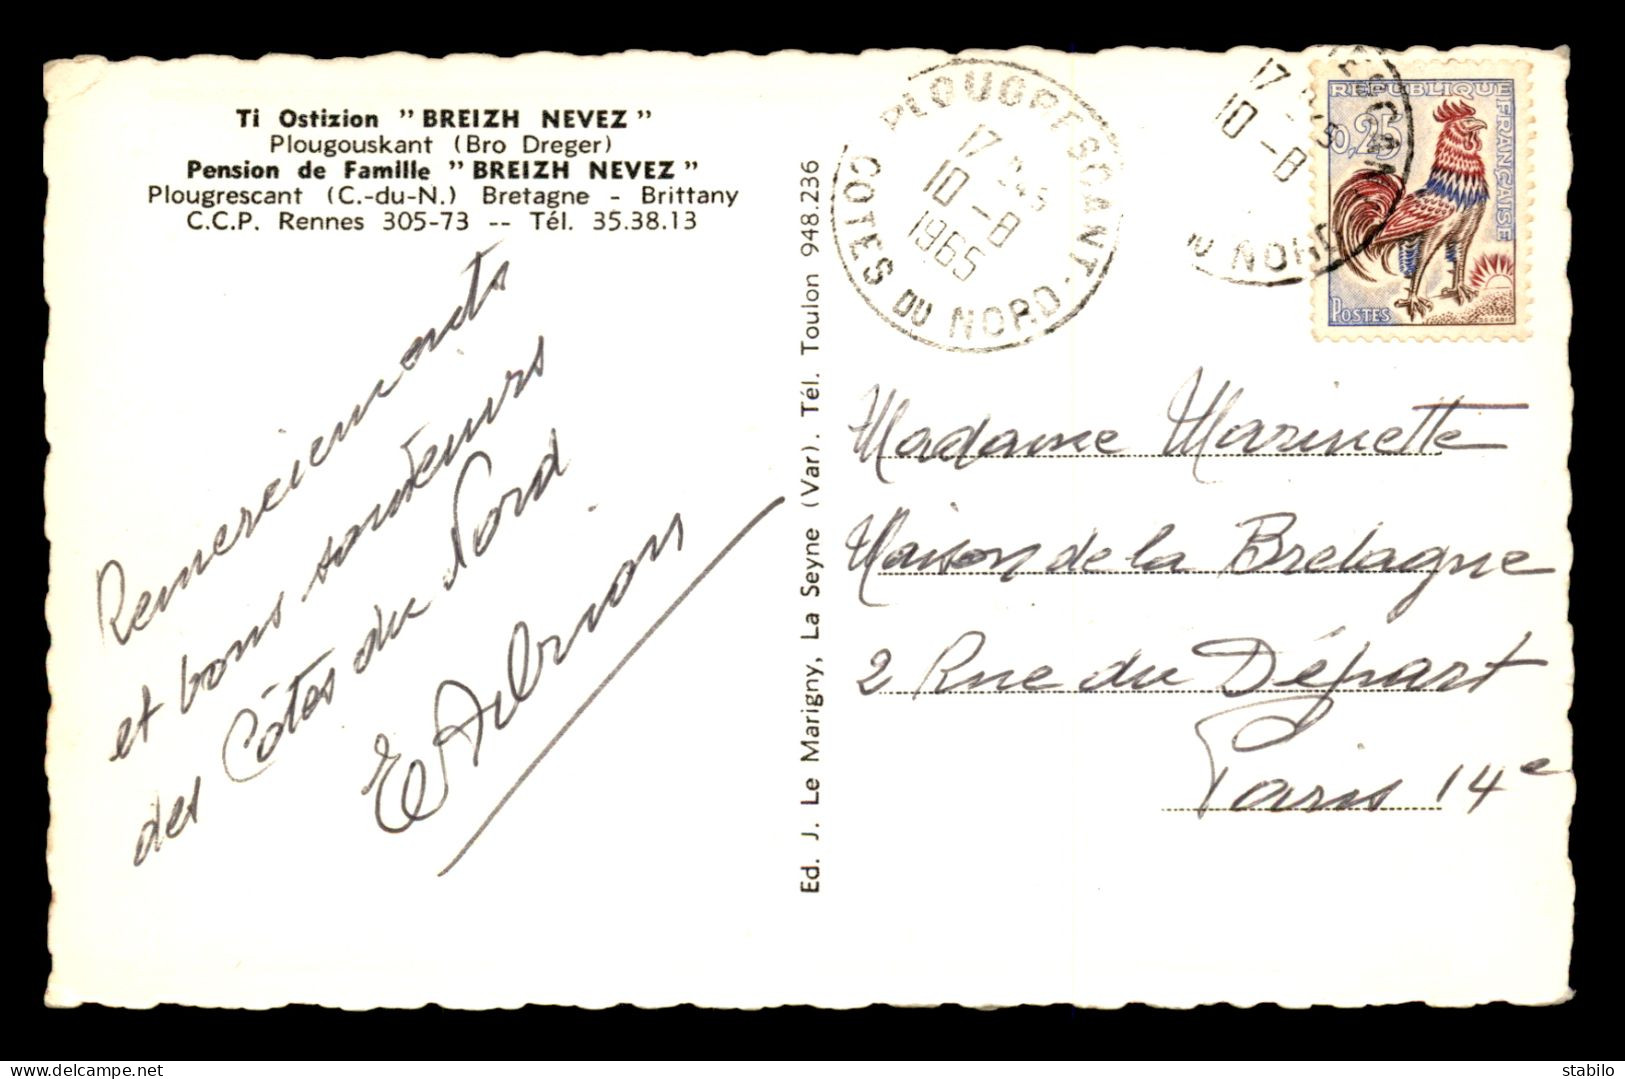 Ti Ostizion "BREIZH NEVEZ"
Plougouskant (Bro Dreger)
Pension de Famille "BREIZH NEVEZ"
Plougrescant (C.-du-N.) Bretagne - Brittany
C.C.P. Rennes 305-73 -- Tél. 35.38.13
Remerciements
et bons souvenirs
des Côtes du Nord
Ed. J. Le Marigny, La Seyne (Var). Tél. Toulon 948.236
PLOUGRESCANT
17 H45
10 -8
1965
COTES DU NORD
17 H45
10 -8
DU NORD
REPUBLIQUE FRANÇAISE
0,25
POSTES
Madame Marinette
Maison de la Bretagne
2 Rue du Départ
Paris 14e
delcampe.net
stabilo